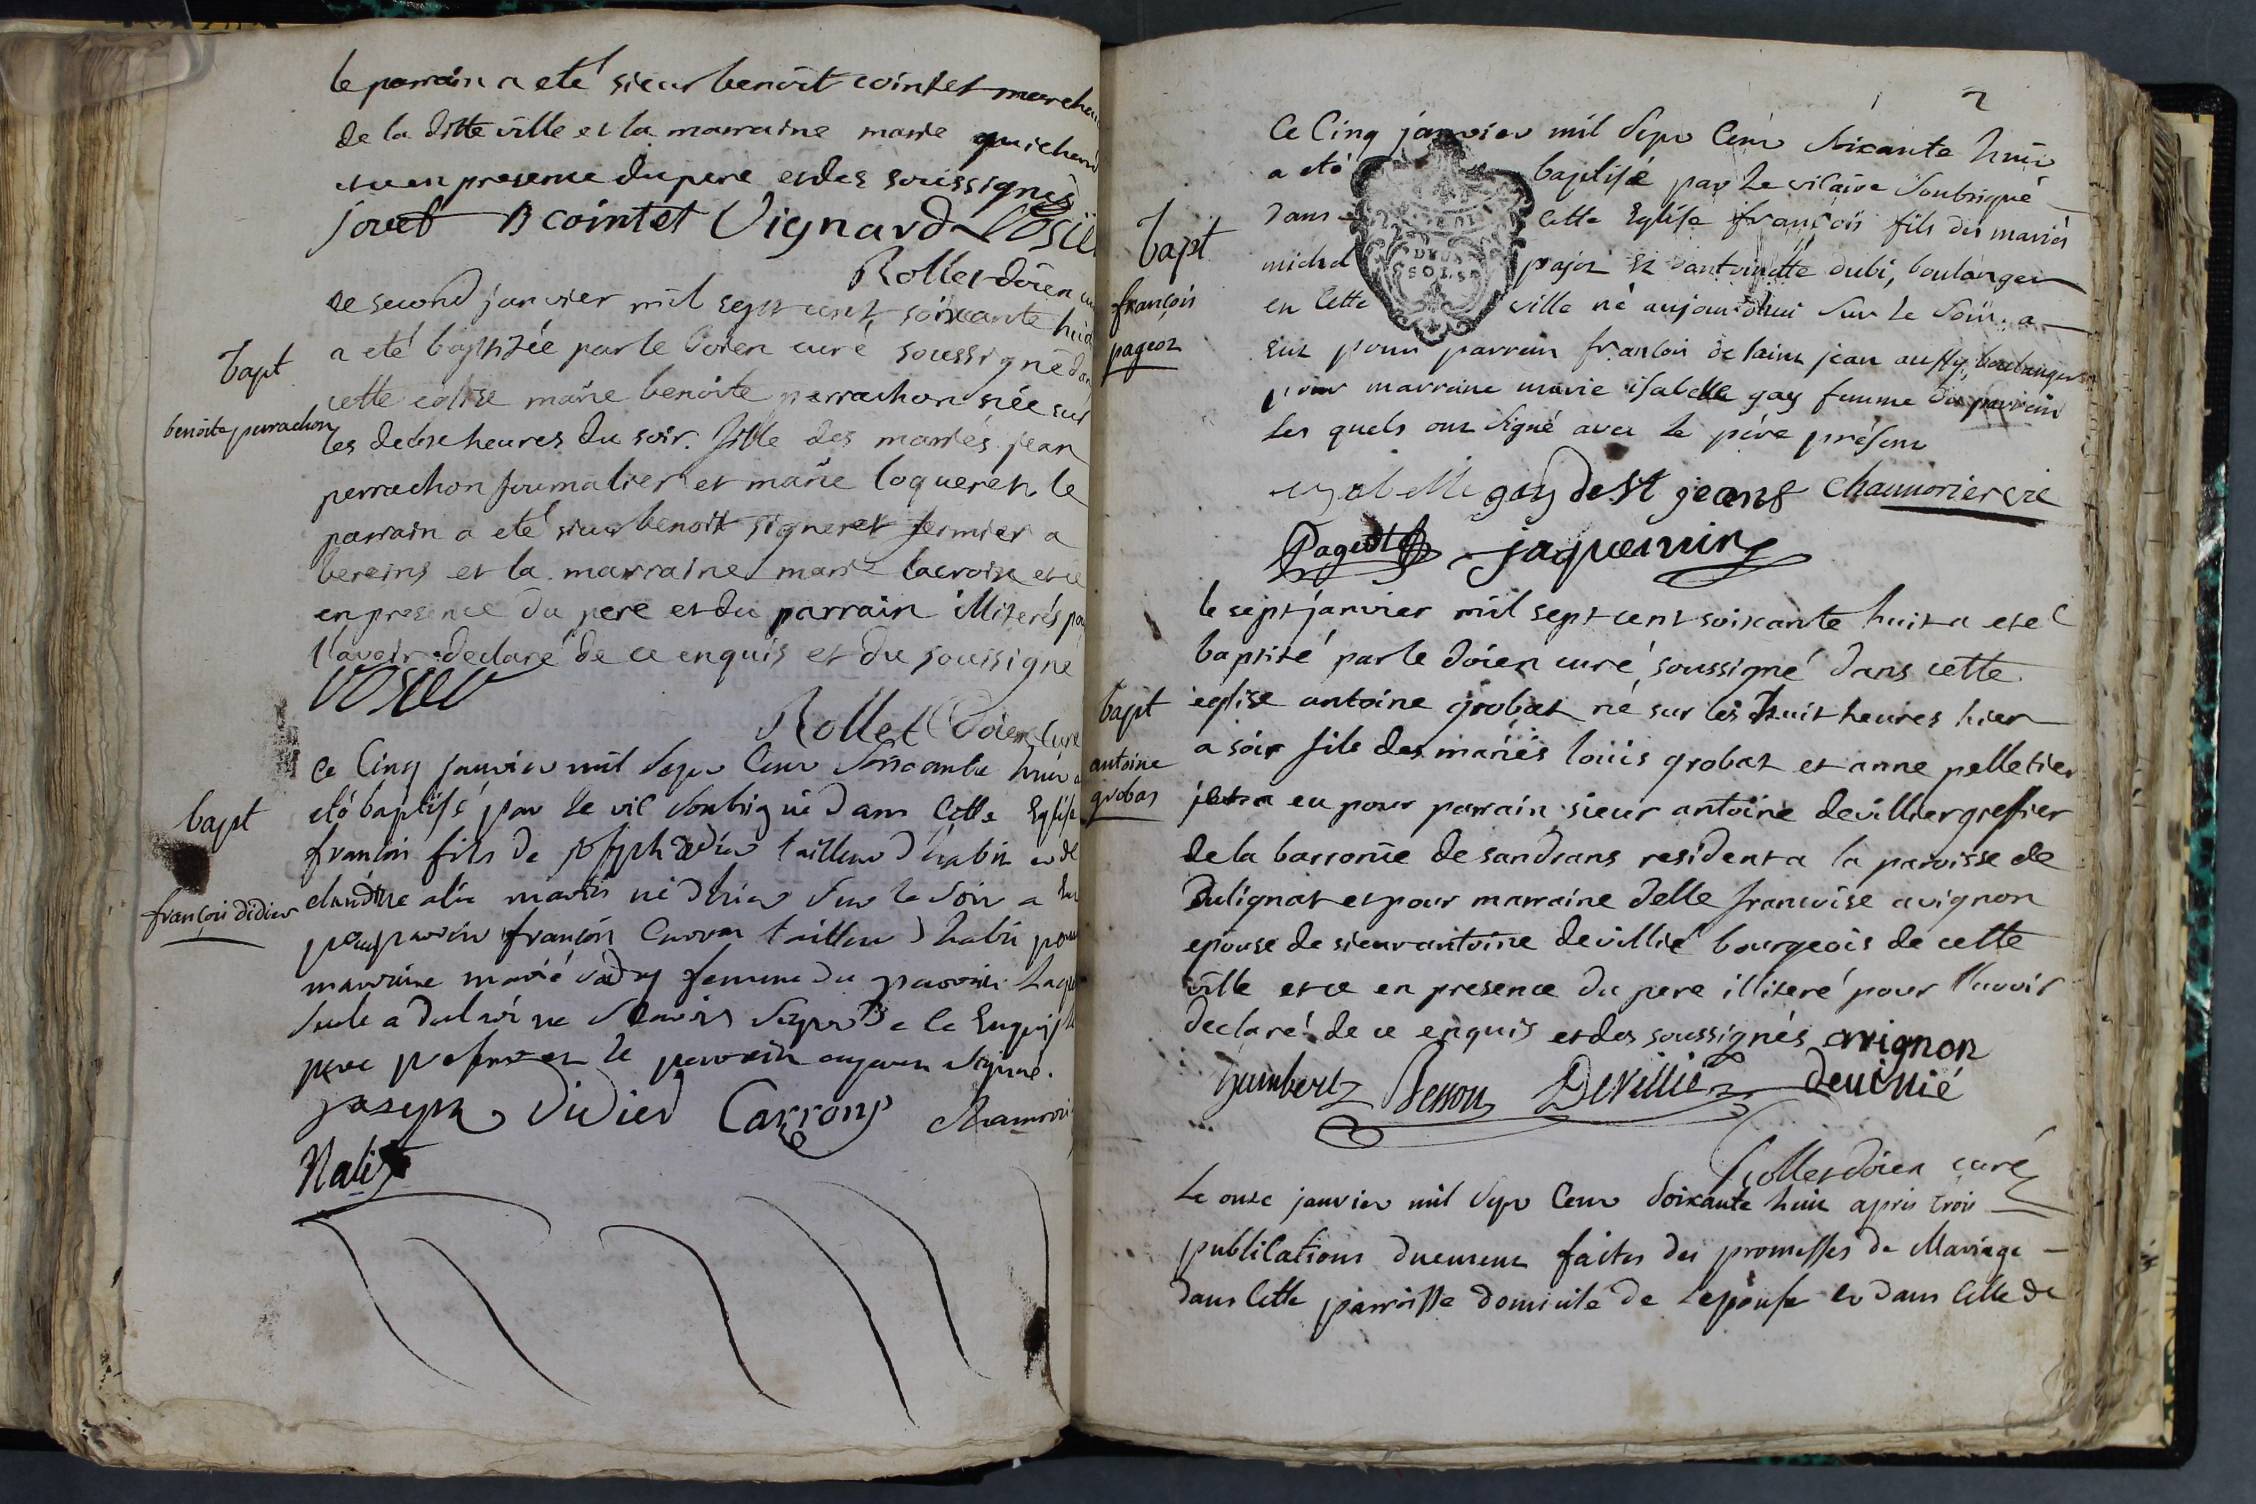 le parrain a eté sieur benoit cointet marchand
de la ditte ville et la marraine marie guichard
et ce en presence du pere et des soussignés
jovet B cointet Vignard
Rollet doien
Le second janvier mil sept cent soixante huit
a eté baptisée par le doien curé soussigné dans
bapt
cette eglise marie benoite perrachon née sur
benoite perrachon
les deux heures du soir. fille des mariés jean
perrachon journalier et marie loqueret. le
parrain a eté sieur benoit signeret fermier a
bereins et la marraine marie lacroix et ce
en presence du pere et du parrain illiterés pour
l'avoir declaré de ce enquis et du soussigné
Rollet Doien Curé
Ce Cinq janvier mil sept Cent soixante huit a
eté baptisé par le vic soubsigné dans Cette Eglise
bapt
françois fils de joseph didier tailleur d'habit et de
françois didier
claudine mariés né d'hier sur le soir a eu
pour parrain françois Carron tailleur d'habit pour
marraine marie femme du parrain
seule a declaré ne sçavoir signer de ce Enquise le
pere present et le parrain ayant signé.
joseph Didier Carron
2
Ce Cinq janvier mil sept Cent soixante huit
a eté baptisé par le vicaire soubsigné
dans cette Eglise françois fils des mariés
bapt
michel pajot et d'antoinette dubi, boulanger
DEUX
SOLS
françois
pageot
en Cette ville né aujourd'hui sur le soir. a
eut pour parrain françois de saint jean aussy boulanger
pour marraine marie isabelle gay femme du parrain
les quels ont signé avec le père présent
ysabelle gay De st jean Chaumorier vic
Pageot jaquemin
le sept janvier mil sept cent soixante huit a eté
baptisé par le doien curé soussigné dans cette
bapt
eglise antoine grobat né sur les huit heures hier
antoine
grobat
a soir fils des mariés loüis grobat et anne pelletier
il a eu pour parrain sieur antoine devillier greffier
de la barronie de sandrans resident a la paroisse de
Dulignat et pour marraine delle francoise avignon
epouse de sieur antoine devillié bourgeois de cette
ville et ce en presence du pere illiteré pour l'avoir
declaré de ce enquis et des soussignés avignon
humbert Besson Devillié devillié
Rollet doien curé
Le onze janvier mil sept Cent soixante huit après trois
publications duement faites des promesses de Mariage
dans Cette parroisse domicile de L'epouse et dans Celle de